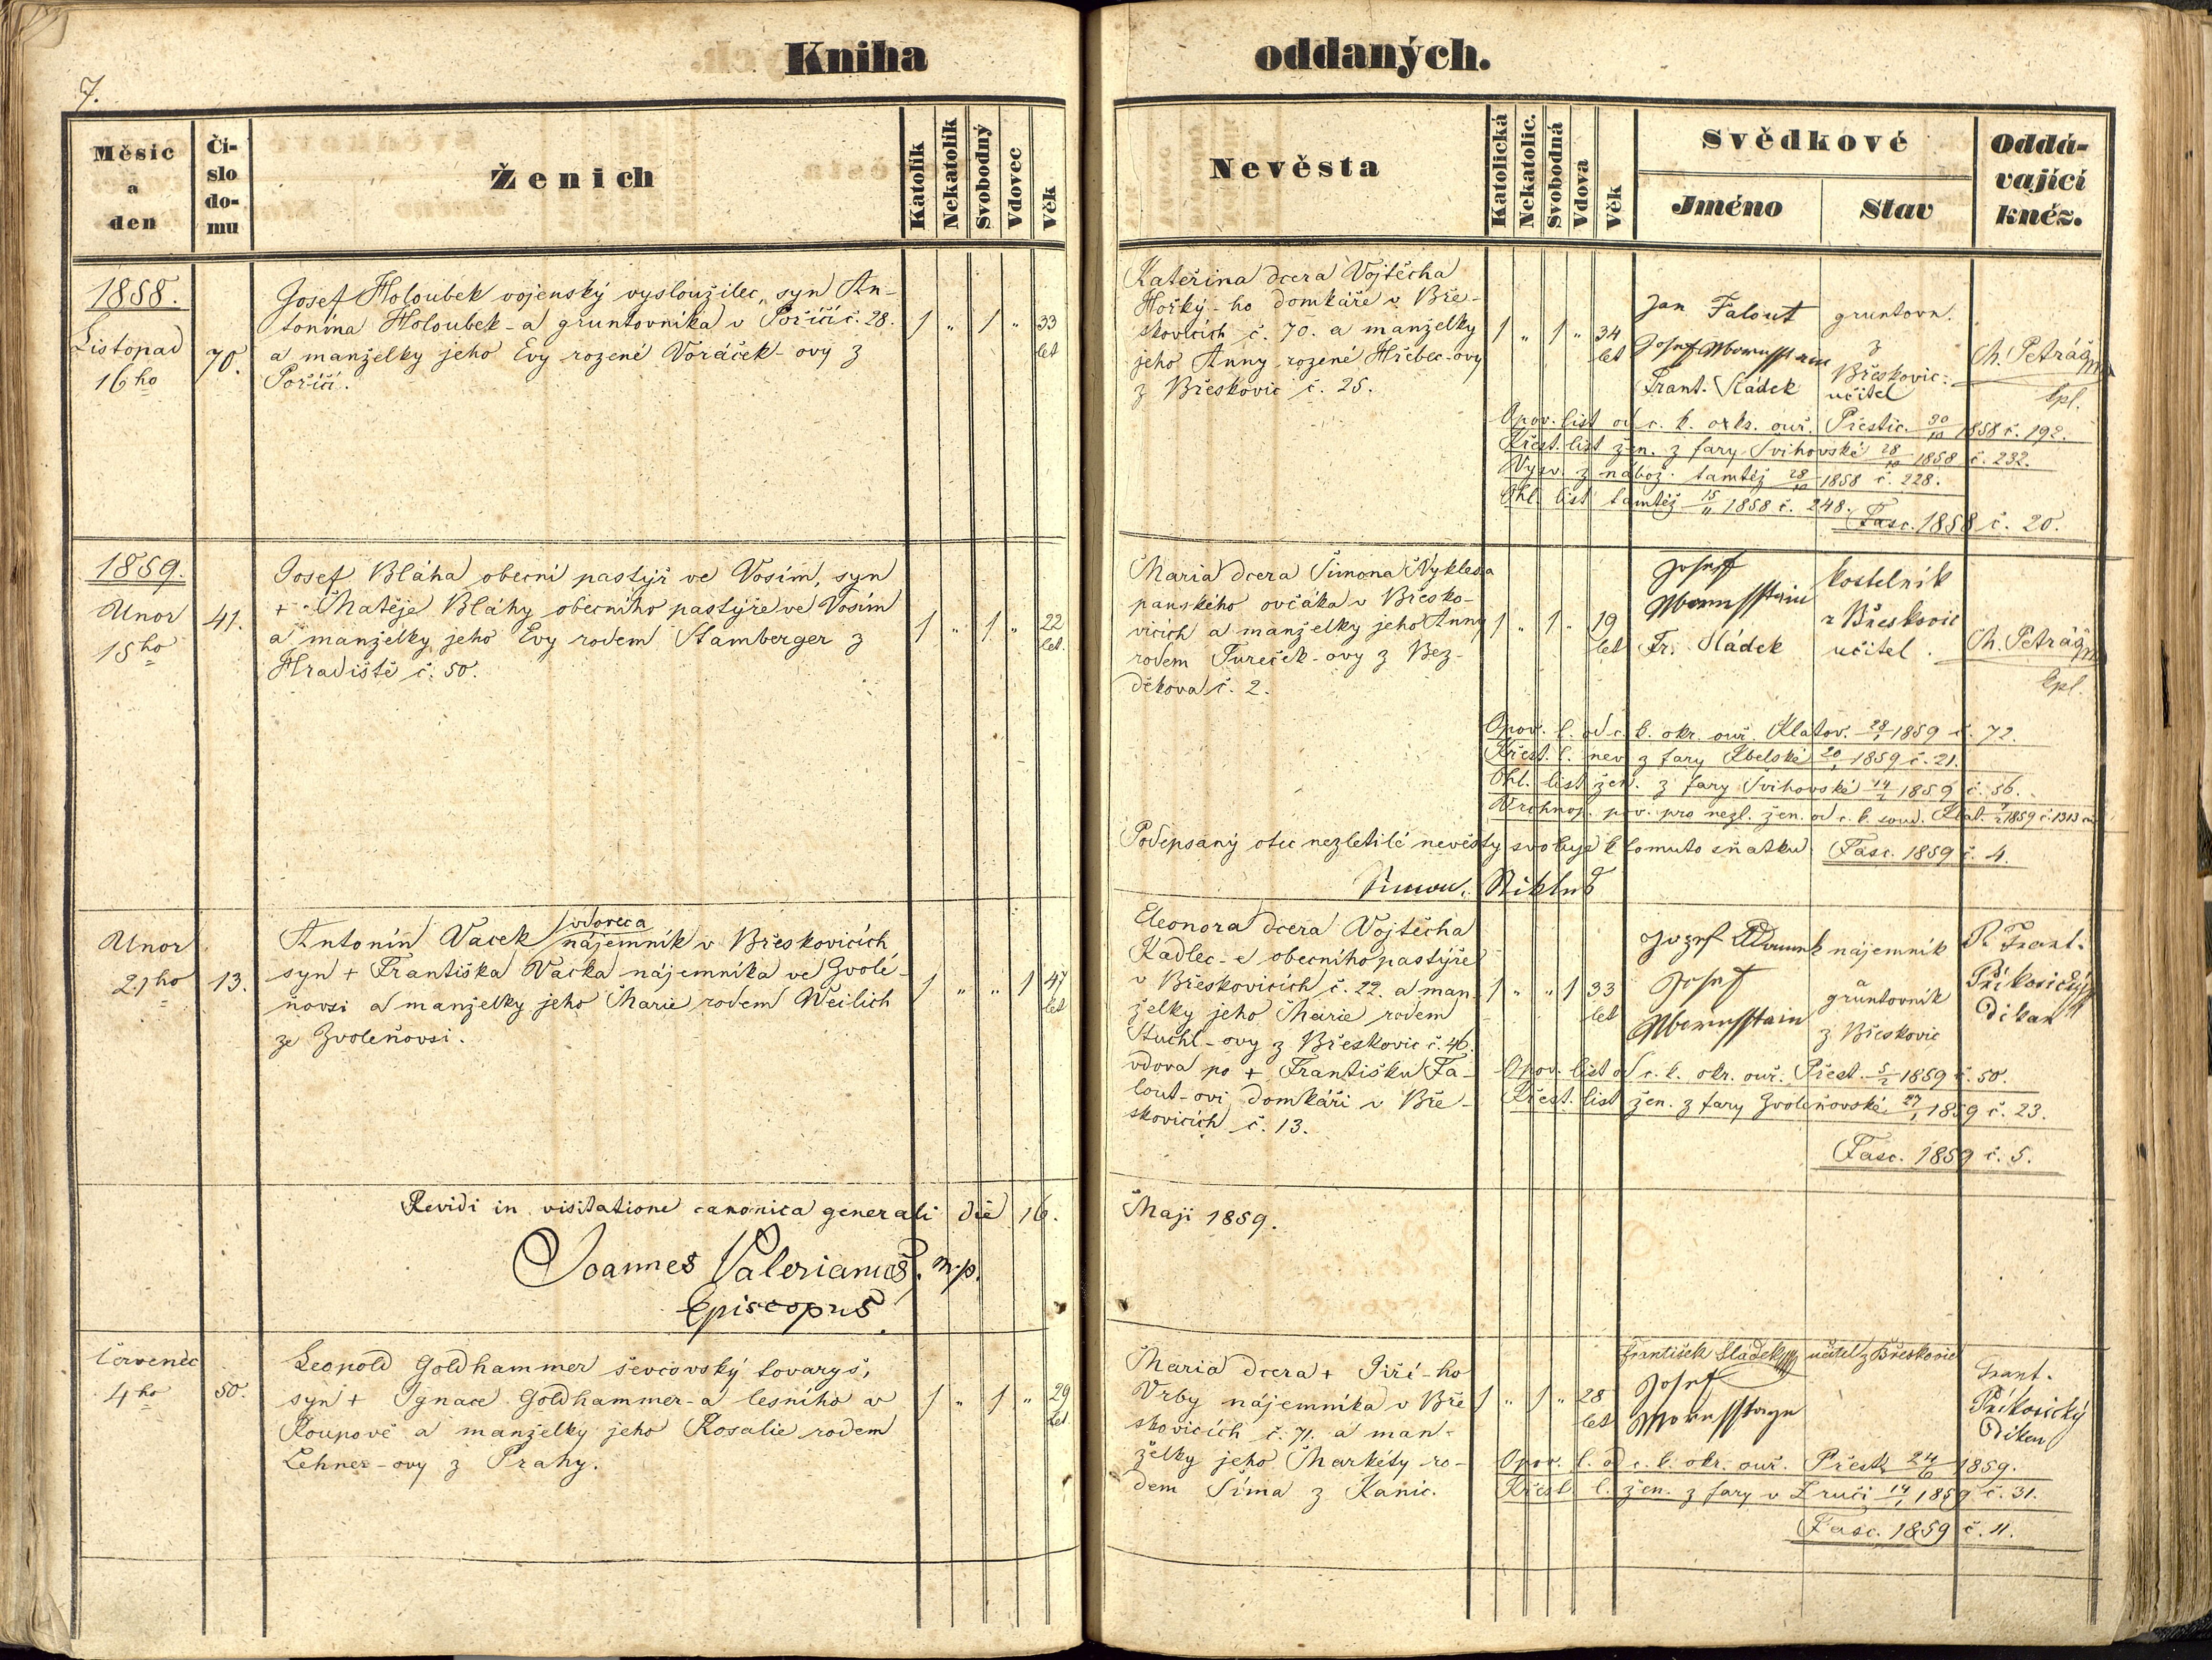 Kniha oddaných.
7.
Měsíc a den
Čí-
slo
do-
mu
Ženich
Katolík
Nekatolík
Svobodný
Vdovec
Věk
Nevěsta
Katolická
Nekatolic.
Svobodná
Vdova
Věk
Svědkové
Jméno
Stav
Oddá-
vající
kněz.
1858.
Listopad
16ho
70.
Josef Holoubek vojenský vysloužilec, syn An-
tonína Holoubek-a gruntovníka v Poříčí č. 28.
a manželky jeho Evy rozené Voráček-ovy z
Poříčí.
1 " 1 " 33
let
Kateřina dcera Vojtěcha
Hořký-ho domkáře v Bře-
skovicích č. 70. a manželky
jeho Anny rozené Hřebec-ovy
z Břeskovic č. 25.
1 " 1 " 34
let
Jan Falout gruntovn.
Josef z
Břeskovic
Frant. Sládek učitel
Th. Petráš
kpl.
Opov. list od c. k. okr. ouř. Přestic. 30/10 1858 č. 192.
Křest. list žen. z fary Švihovské 28/10 1858 č. 232.
Vysv. z nábož. tamtéž 28/10 1858 č. 228.
Ohl. list tamtéž 15/11 1858 č. 248.
Fasc. 1858 č. 20.
1859.
Unor
15ho
41.
Josef Bláha obecní pastýř ve Vosím, syn
+ Matěje Bláhy obecního pastýře ve Vosím
a manželky jeho Evy rodem Stamberger z
Hradiště č. 50.
1 " 1 " 22
let
Maria dcera Šimona Nyklesa
panského ovčáka v Břesko-
vicích a manželky jeho Anny
rodem Tureček-ovy z Bez-
děkova č. 2.
1 " 1 " 19
let
Josef kostelník
z Břeskovic
Fr. Sládek učitel.
Th. Petráš
kpl.
Opov. l. od c. k. okr. ouř. Klatov. 28/1 1859 č. 72.
Křest. l. nev. z fary Kbelské 20/1 1859 č. 21.
Ohl. list žen. z fary Švihovské 14/2 1859 č. 56.
Vrchnos. pov. pro nezl. žen. od c. k. soud. Klat. 1859 č. 1313
Podepsaný otec nezletilé nevěsty svoluje k tomuto sňatku. Fasc. 1859 č. 4.
Šimon
Unor
21ho
13.
Antonín Vacek vdovec a nájemník v Břeskovicích
syn + Františka Vacka nájemníka ve Zvolé-
ňovsi a manželky jeho Marie rodem Weilich
ze Zvoleňovsi.
1 " " 1 47
let
Eleonora dcera Vojtěcha
Kadlec-e obecního pastýře
v Břeskovicích č. 22. a man-
želky jeho Marie rodem
Stuchl-ovy z Břeskovic č. 46.
vdova po + Františku Fa-
lout-ovi domkáři v Bře-
skovicích č. 13.
1 " " 1 33
let
Jozef Adamek nájemník
a
Josef gruntovník
z Břeskovic
P. Frant.
Příkosický
děkan
Opov. list od c. k. okr. ouř. Přest. 5/2 1859 č. 50.
Křest. list žen. z fary Zvoleňovské 27/1 1859 č. 23.
Fasc. 1859 č. 5.
Revidi in visitatione canonica generali die 16. Maji 1859.
Joannes Valerianus, m.p.
Episcopus.
Červenec
4ho
50.
Leopold Goldhammer ševcovský tovaryš,
syn + Ignace Goldhammer-a lesního v
Roupově a manželky jeho Rosalie rodem
Lehner-ovy z Prahy.
1 " 1 " 29
let
Maria dcera + Jiří-ho
Vrby nájemníka v Bře
skovicích č. 71. a man-
želky jeho Markéty ro-
dem Šíma z Kanic.
1 " 1 " 28
let
František Sládek učitel z Břeskovic
Josef
Frant.
Příkosický
děkan
Opov. l. od c. k. okr. ouř. Přest. 24/6 1859.
Křest. l. žen. z fary v Zruči 14/1 1859 č. 31.
Fasc. 1859 č. 11.